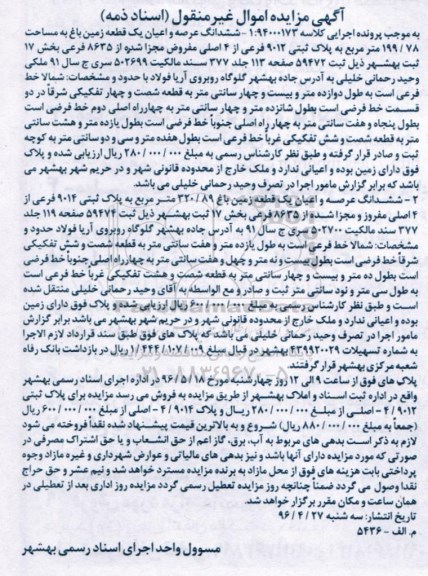 آگهی مزایده اموال غیرمنقول (اسناد ذمه)
به موجب پرونده اجرایی کلاسه ۹۴۰۰۰۱۷۳:۱-ششدانگ عرصه و اعیان یک قطعه زمین باغ به مساحت
۱۹۹/۷۸ متر مربع به پلاک ثبتی ۹۰۱۲ فرعی از ۴ اصلی مفروض مجزا شده از ۸۶۳۵ فرعی بخش ۱۷
ثبت بهشهر ذیل ثبت ۵۹۴۷۲ صفحه ۱۱۳ جلد ۳۷۷ سند مالکیت ۵۰۲۶۹۹ سری ج سال ۹۱ ملکی
وحید رحمانی خلیلی به آدرس جاده بهشهر گلوگاه روبروی آریا فولاد با حدود و مشخصات: شمالا خط
فرعی است به طول دوازده متر و بیست و چهار سانتی متر به قطعه شصت و چهار تفکیکی شرقا در دو
قسمت خط فرضی است بطول شانزده متر و چهار سانتی متر به چهارراه اصلی دوم خط فرضی است
بطول پنجاه و هفت سانتی متر به چهار راه اصلی جنوبا خط فرضی است بطول یازده متر و هشت سانتی
متر به قطعه شصت و شش تفکیکی غربا خط فرعی است بطول هفده متر و سی و دو سانتی متر به کوچه
ثبت و صادر گرفته و طبق نظر کارشناس رسمی به مبلغ ۲۸۰/۰۰۰/۰۰۰ ریال ارزیابی شده و پلاک
فوق دارای زمین بوده و اعیانی ندارد و ملک خارج از محدوده قانونی شهر و در حریم شهر بهشهر می
باشد که برابر گزارش مامور اجرا در تصرف وحید رحمانی خلیلی می باشد.
۲- ششدانگ عرصه و اعیان یک قطعه زمین باغ ۳۲۰/۸۹ متر مربع به پلاک ثبتی ۹۰۱۴ فرعی از
۴ اصلی مفروز و مجزا شده از ۸۶۳۵ فرعی بخش ۱۷ ثبت بهشهر ذیل ثبت ۵۹۴۷۴ صفحه ۱۱۹ جلد
۳۷۷ سند مالکیت ۵۰۲۷۰۰ سری ج سال ۹۱ به آدرس جاده بهشهر گلوگاه روبروی آریا فولاد حدود و
مشخصات: شمالا خط فرعی است به طول یازده متر و هفت سانتی متر به قطعه شصت و شش تفکیکی
شرقا خط فرضی است بطول بیست و نه متر و چهل و هفت سانتی متر به چهارراه اصلی جنوبا خط فرضی
است بطول ده متر و بیست و چهار سانتی متر به قطعه شصت و هشت تفکیکی غربا خط فرعی است
به طول سی متر و نود سانتی متر ثبت و صادر و مع الواسطه به آقای وحید رحمانی خلیلی منتقل شده
است و طبق نظر کارشناس رسمی به مبلغ ۶۰۰/۰۰۰/۰۰۰ ریال ارزیابی شده و پلاک فوق دارای زمین
بوده و اعیانی ندارد و ملک خارج از محدوده قانونی شهر و در حریم شهر بهشهر می باشد برابر گزارش
مامور اجرا در تصرف وحید رحمانی خلیلی می باشد که پلاک های فوق طبق سند قرارداد لازم الاجرا
به شماره تسهیلات ۴۳۹۹۲۰۰۲۹ بهشهر در قبال مبلغ ۱/۴۴۴/۱۰۷/۰۰۹ ریال در بازداشت بانک رفاه
شعبه مرکزی بهشهر قرار گرفتند.
پلاک های فوق از ساعت ۹ الی ۱۲ روز چهارشنبه مورخ ۹۶/۵/۱۸ در اداره اجرای اسناد رسمی بهشهر
واقع در اداره ثبت اسناد و املاک بهشهر از طریق مزایده به فروش می رسد مزایده برای پلاک ثبتی
۹۰۱۲/۴- اصلی از مبلغ ۲۸۰/۰۰۰/۰۰۰ ریال و پلاک ۹۰۱۴/۴- اصلی از مبلغ ۶۰۰/۰۰۰/۰۰۰ ریال
(جمعا به مبلغ ۸۸۰/۰۰۰/۰۰۰ ریال) شروع و به بالاترین قیمت پیشنهاد شده نقدا فروخته می شود
لازم به ذکر است بدهی های مربوط به آب، برق، گاز اعم از حق انشعاب و یا حق اشتراک مصرفی در
صورتی که مورد مزایده دارای آنها باشد و نیز بدهی های مالیاتی و عوارض شهرداری و غیره مازاد وجوه
پرداختی بابت هزینه های فوق از محل مازاد به برنده مزایده مسترد خواهد شد و نیم عشر و حق حراج
نقدا وصول می گردد ضمناً چنانچه روز مزایده تعطیل رسمی گردد مزایده روز اداری بعد از تعطیلی در
همان ساعت و مکان مقرر برگزار خواهد شد.
تاریخ انتشار: سه شنبه ۹۶/۴/۲۷
م. الف - ۵۴۳۶
مسوول واحد اجرای اسناد رسمی بهشهر